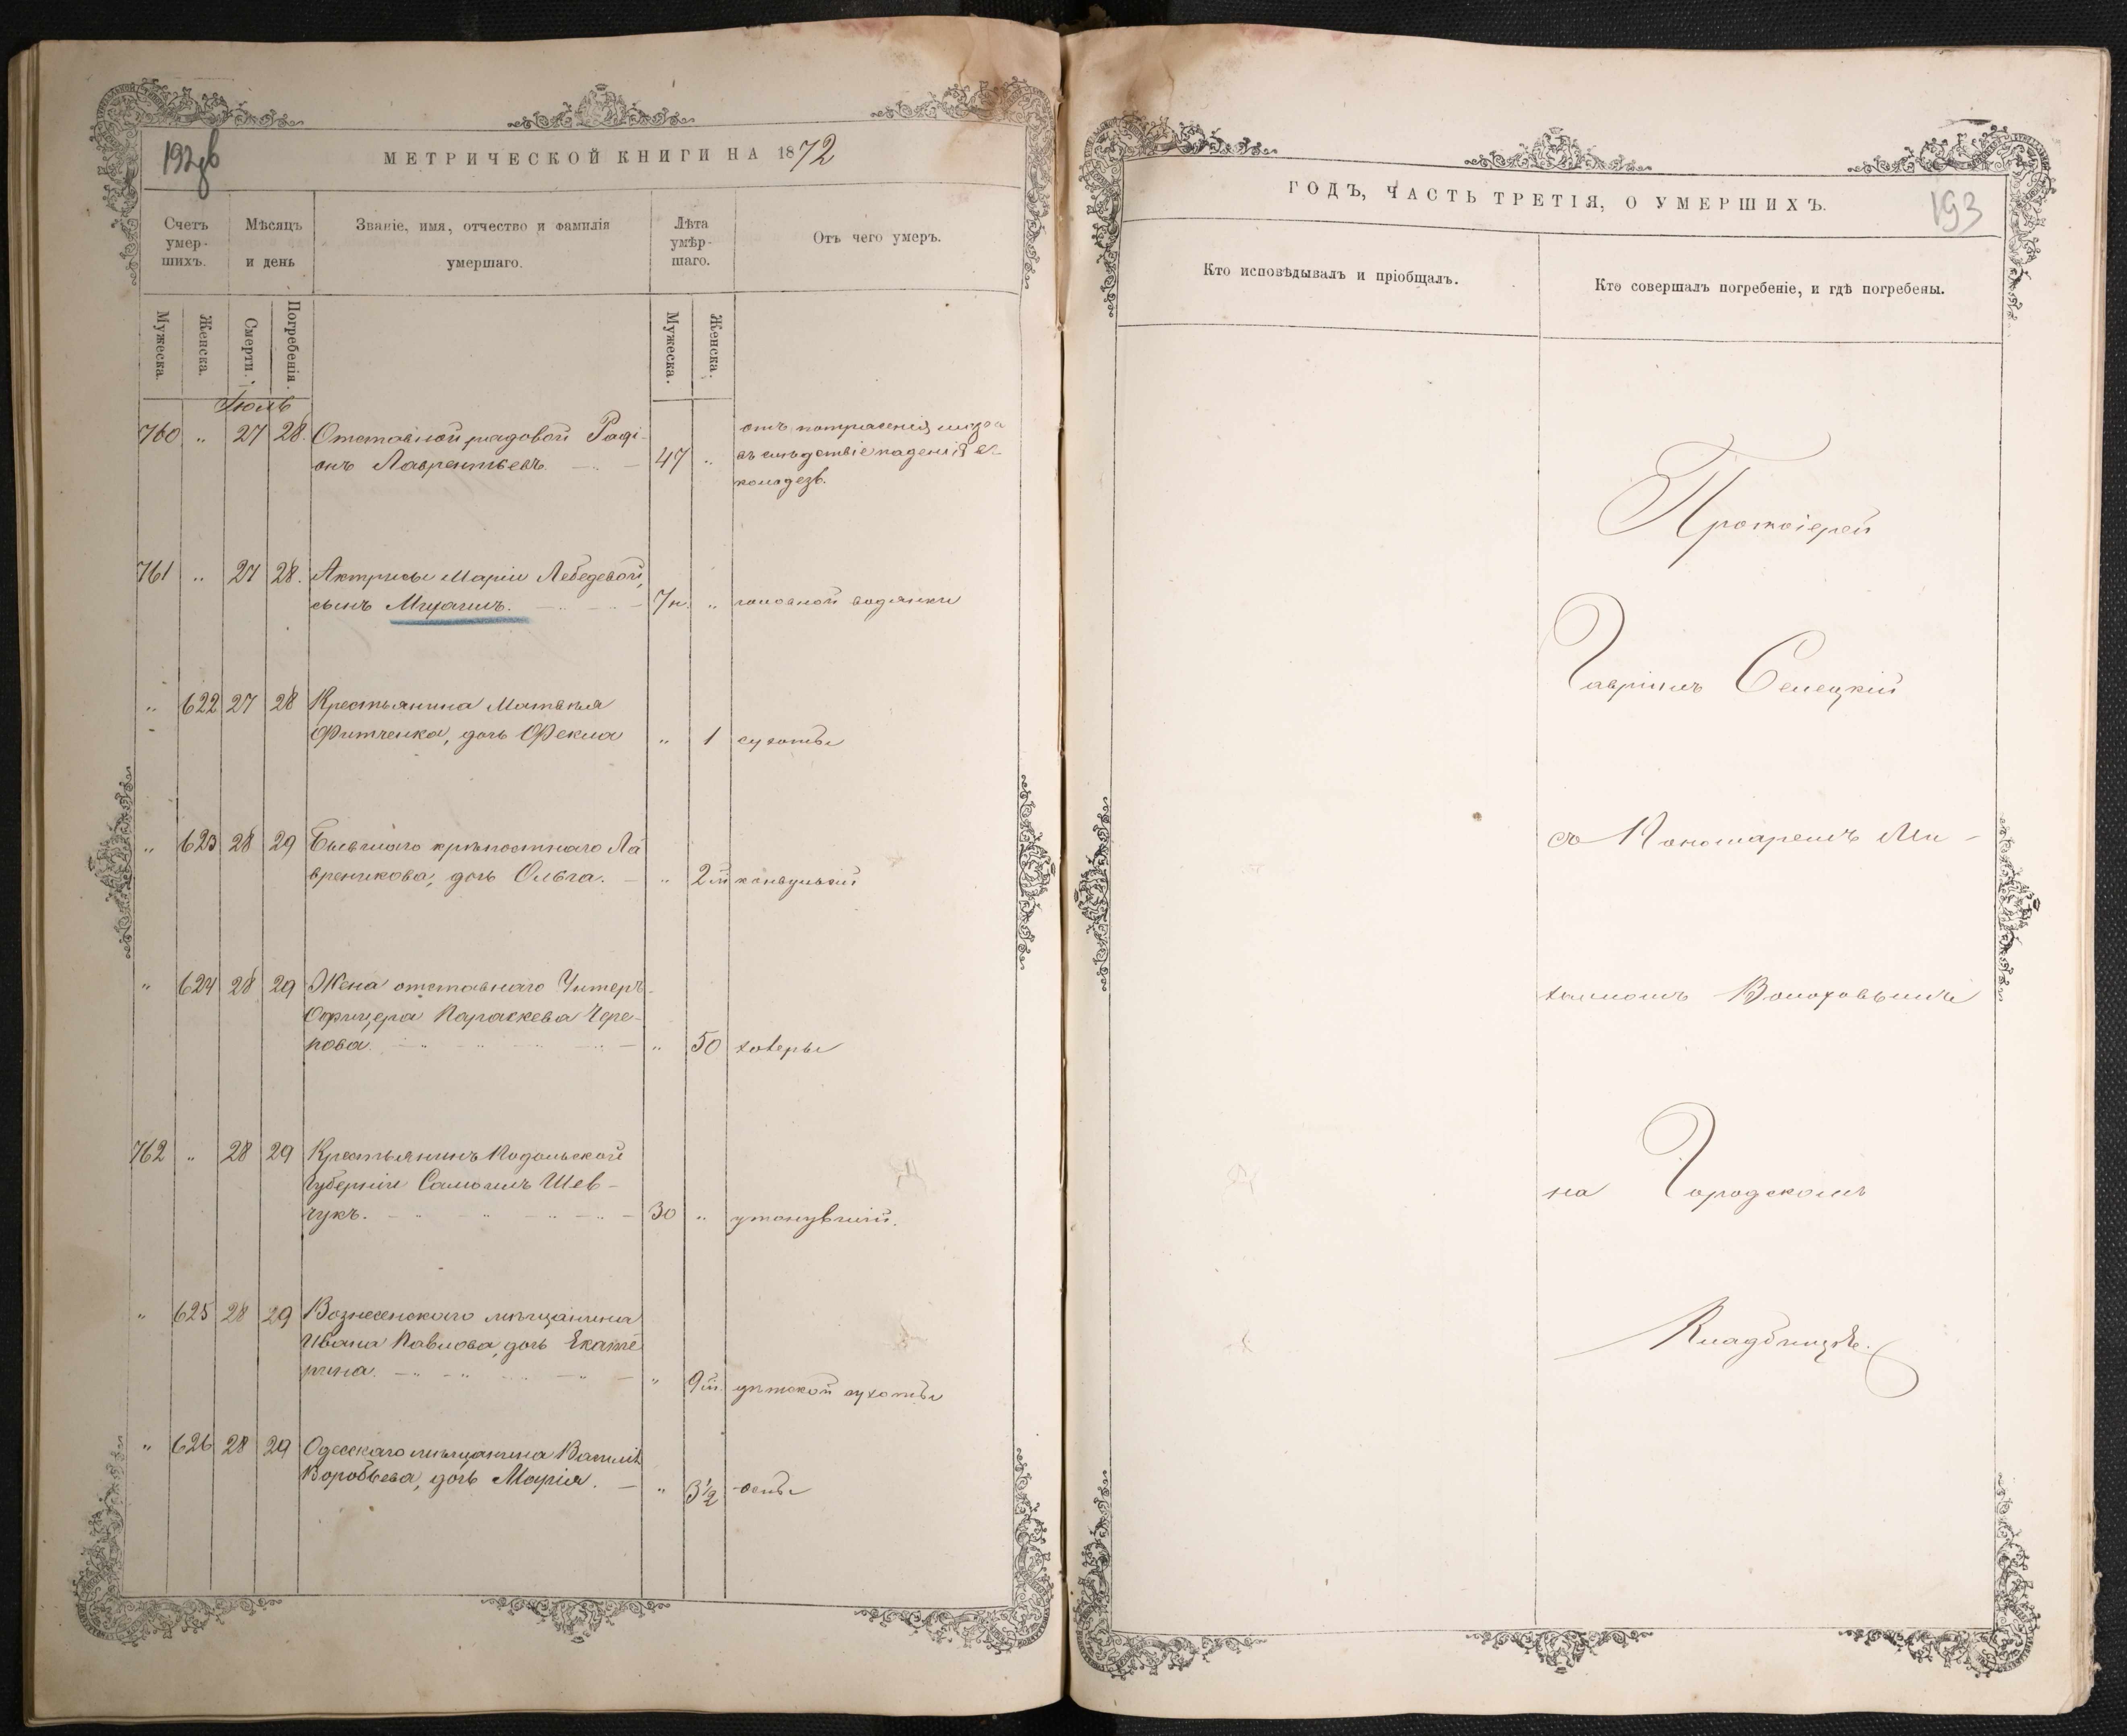 МЕТРИЧЕСКОЙ КНИГИ НА 1872
Счетъ умер-шихъ.
Мѣсяцъ и день
Званіе, имя, отчество и фамилія умершаго.
Лѣта умѣр-шаго.
Отъ чего умеръ.
Мужеска.
Женска.
Смерти.
Погребенія.
Мужеска.
Женска.
Іюль
760 „ 27 28. Отставной рядовой Раді-
онъ Лаврентьевъ. 47 „
отъ потрясенія мозга
въ слѣдствіе паденія въ
колодезь.
761 „ 27 28. Актрисы Маріи Лебедевой,
сынъ Михаилъ. 7н. „ головной водянки
„ 622 27 28 Крестьянина Матвѣя
Фитченка, дочь Фекла „ 1 сухоты
„ 623 28 29 Бывшаго крѣпостнаго Ла
вреникова, дочь Ольга. „ 2м конвульсій
„ 624 28 29 Жена отставнаго Унтеръ-
Офицера Параскева Чере-
пова. „ 50 холеры
762 „ 28 29 Крестьянинъ Подольской
Губерніи Самоилъ Шев-
чукъ. 30 „ утонувшій.
„ 625 28 29 Вознесенскаго мѣщанина
Ивана Павлова, дочь Екате
рина. „ 9м. дѣтской сухоты
„ 626 28 29 Одесскаго мѣщанина Василія
Воробьева, дочь Марія. „ 3½ оспы
ГОДЪ, ЧАСТЬ ТРЕТІЯ, О УМЕРШИХЪ.
193
Кто исповѣдывалъ и пріобщалъ.
Кто совершалъ погребеніе, и гдѣ погребены.
Протоіерей
Гавріилъ Селецкій
съ Пономаремъ Ми-
хаиломъ Волоховымъ
на Городскомъ
Кладбищѣ.